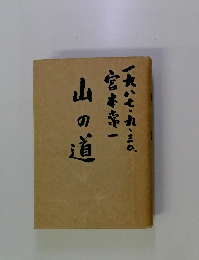 一九八七・九・三〇、
宮本常一
山の道